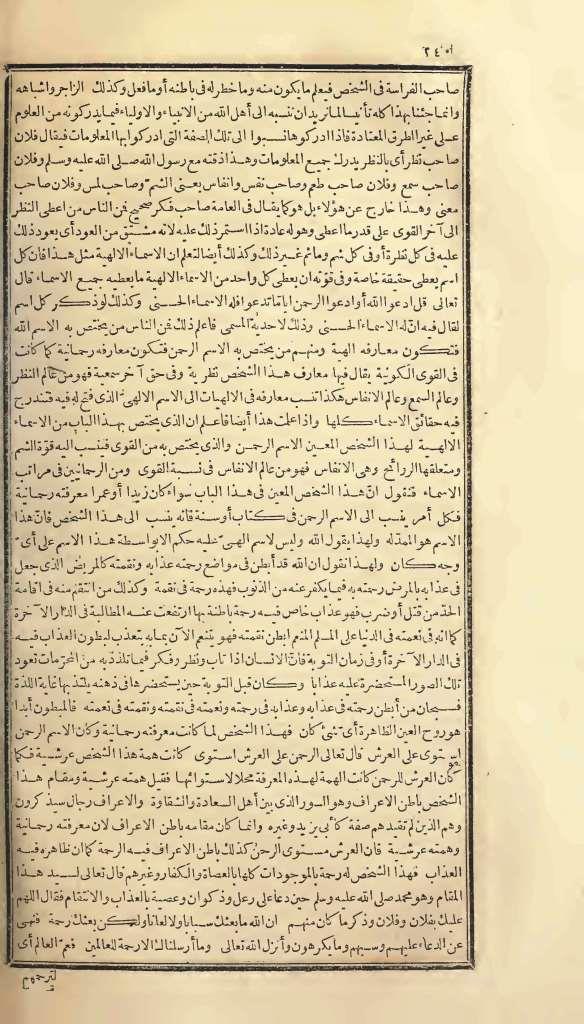 ٢٤٠
صاحب الفراسة فى الشخص فيعلم ما يكون منه وما خطر له فى باطنه أو ما فعل وكذلك الزاجر واشباهه
وانما جئنا بهذا كله تأنيسا لما نريد أن ننسبه الى أهل الله من الانبياء والاولياء فيما يدركونه من العلوم
على غير الطرق المعتادة فاذا ادركوها نسبوا الى تلك الصفة التى ادركوا بها المعلومات فيقال فلان
صاحب نظر أى بالنظر يدرك جميع المعلومات وهذا ذقته مع رسول الله صلى الله عليه وسلم وفلان
صاحب سمع وفلان صاحب طعم وصاحب نفس وانفاس يعنى الشم وصاحب لمس وفلان صاحب
معنى وهذا خارج عن هؤلاء بل هو كما يقال فى العامة صاحب فكر صحيح فمن الناس من اعطى النظر
الى آخر القوى على قدر ما اعطى وهو له عادة اذا استمر ذلك عليه لانه مشتق من العود أى يعود ذلك
عليه فى كل نظرة أو فى كل شم وما ثم غير ذلك وكذلك أيضا لتعلم ان الاسماء الالهية مثل هذا فان كل
اسم يعطى حقيقة خاصة وفى قوته ان يعطى كل واحد من الاسماء الالهية ما يعطيه جميع الاسماء قال
تعالى قل ادعوا الله أو ادعوا الرحمن اياما تدعوا فله الاسماء الحسنى وكذلك لو ذكر كل اسم
لقال فيه ان له الاسماء الحسنى وذلك لاحدية المسمى فاعلم ذلك فمن الناس من يختص به الاسم الله
فتكون معارفه الهية ومنهم من يختص به الاسم الرحمن فتكون معارفه رحمانية كما كانت
فى القوى الكونية يقال فيها معارف هذا الشخص نظرية وفى حق آخر سمعية فهو من عالم النظر
وعالم السمع وعالم الانفاس هكذا تنسب معارفه فى الالهيات الى الاسم الالهى الذى فتح له فيه فتندرج
فيه حقائق الاسماء كلها واذا علمت هذا أيضا فاعلم ان الذى يختص بهذا الباب من الاسماء
الالهية لهذا الشخص المعين الاسم الرحمن والذى يختص به من القوى فينسب اليه قوة الشم
ومتعلقها الروائح وهى الانفاس فهو من عالم الانفاس فى نسبة القوى ومن الرحمانيين فى مراتب
الاسماء فنقول ان هذا الشخص المعين فى هذا الباب سواء كان زيدا أو عمرا معرفته رحمانية
فكل أمر ينسب الى الاسم الرحمن فى كتاب أو سنة فانه ينسب الى هذا الشخص فان هذا
الاسم هو الممد له ولهذا يقول الله وليس لاسم الهى عليه حكم الا بواسطة هذا الاسم على أى
وجه كان ولهذا نقول ان الله قد أبطن فى مواضع رحمته عذابه ونقمته كالمريض الذى جعل
فى عذابه بالمرض رحمته به فيما يكفر عنه من الذنوب فهذه رحمة فى نقمة وكذلك من انتقم منه فى اقامة
الحد من قتل أو ضرب فهو عذاب خاص فيه رحمة باطنة بها ارتفعت عنه المطالبة فى الدار الآخرة
كما انه فى نعمته فى الدنيا على المسلم المنعم ابطن نقمته فهو ينعم الآن بما به يتعذب لبطون العذاب فيه
فى الدار الآخرة أو فى زمان التوبة فان الانسان اذا تاب ونظر وفكر فيما تلذذ به من المحرمات تعود
تلك الصور المستحضرة عليه عذابا وكان قبل التوبة حين يستحضرها فى ذهنه يلتذ بها غاية اللذة
فسبحان من أبطن رحمته فى عذابه وعذابه فى رحمته ونعمته فى نقمته ونقمته فى نعمته فالمبطون أبدا
هو روح العين الظاهرة أى شئ كان فهذا الشخص لما كانت معرفته رحمانية وكان الاسم الرحمن
استوى على العرش قال تعالى الرحمن على العرش استوى كانت همة هذا الشخص عرشية فكما
كان العرش للرحمن كانت الهمة لهذه المعرفة محلا لاستوائها فقيل همته عرشية ومقام هذا
الشخص باطن الاعراف وهو السور الذى بين أهل السعادة والشقاوة والاعراف رجال سيذكرون
وهم الذين لم تقيدهم صفة كأبى يزيد وغيره وانما كان مقامه باطن الاعراف لان معرفته رحمانية
وهمته عرشية فان العرش مستوى الرحمن كذلك باطن الاعراف فيه الرحمة كما ان ظاهره فيه
العذاب فهذا الشخص له رحمة بالموجودات كلها بالعصاة والكفار وغيرهم قال تعالى لسيد هذا
المقام وهو محمد صلى الله عليه وسلم حين دعا على رعل وذكوان وعصية بالعذاب والانتقام فقال اللهم
عليك بفلان وفلان وذكر ما كان منهم ان الله ما بعثك سبابا ولا لعانا ولكن بعثك رحمة فنهى
عن الدعاء عليهم وسبهم وما يكرهون وأنزل الله تعالى وما أرسلناك الا رحمة للعالمين فعم العالم أى
لترحمهم